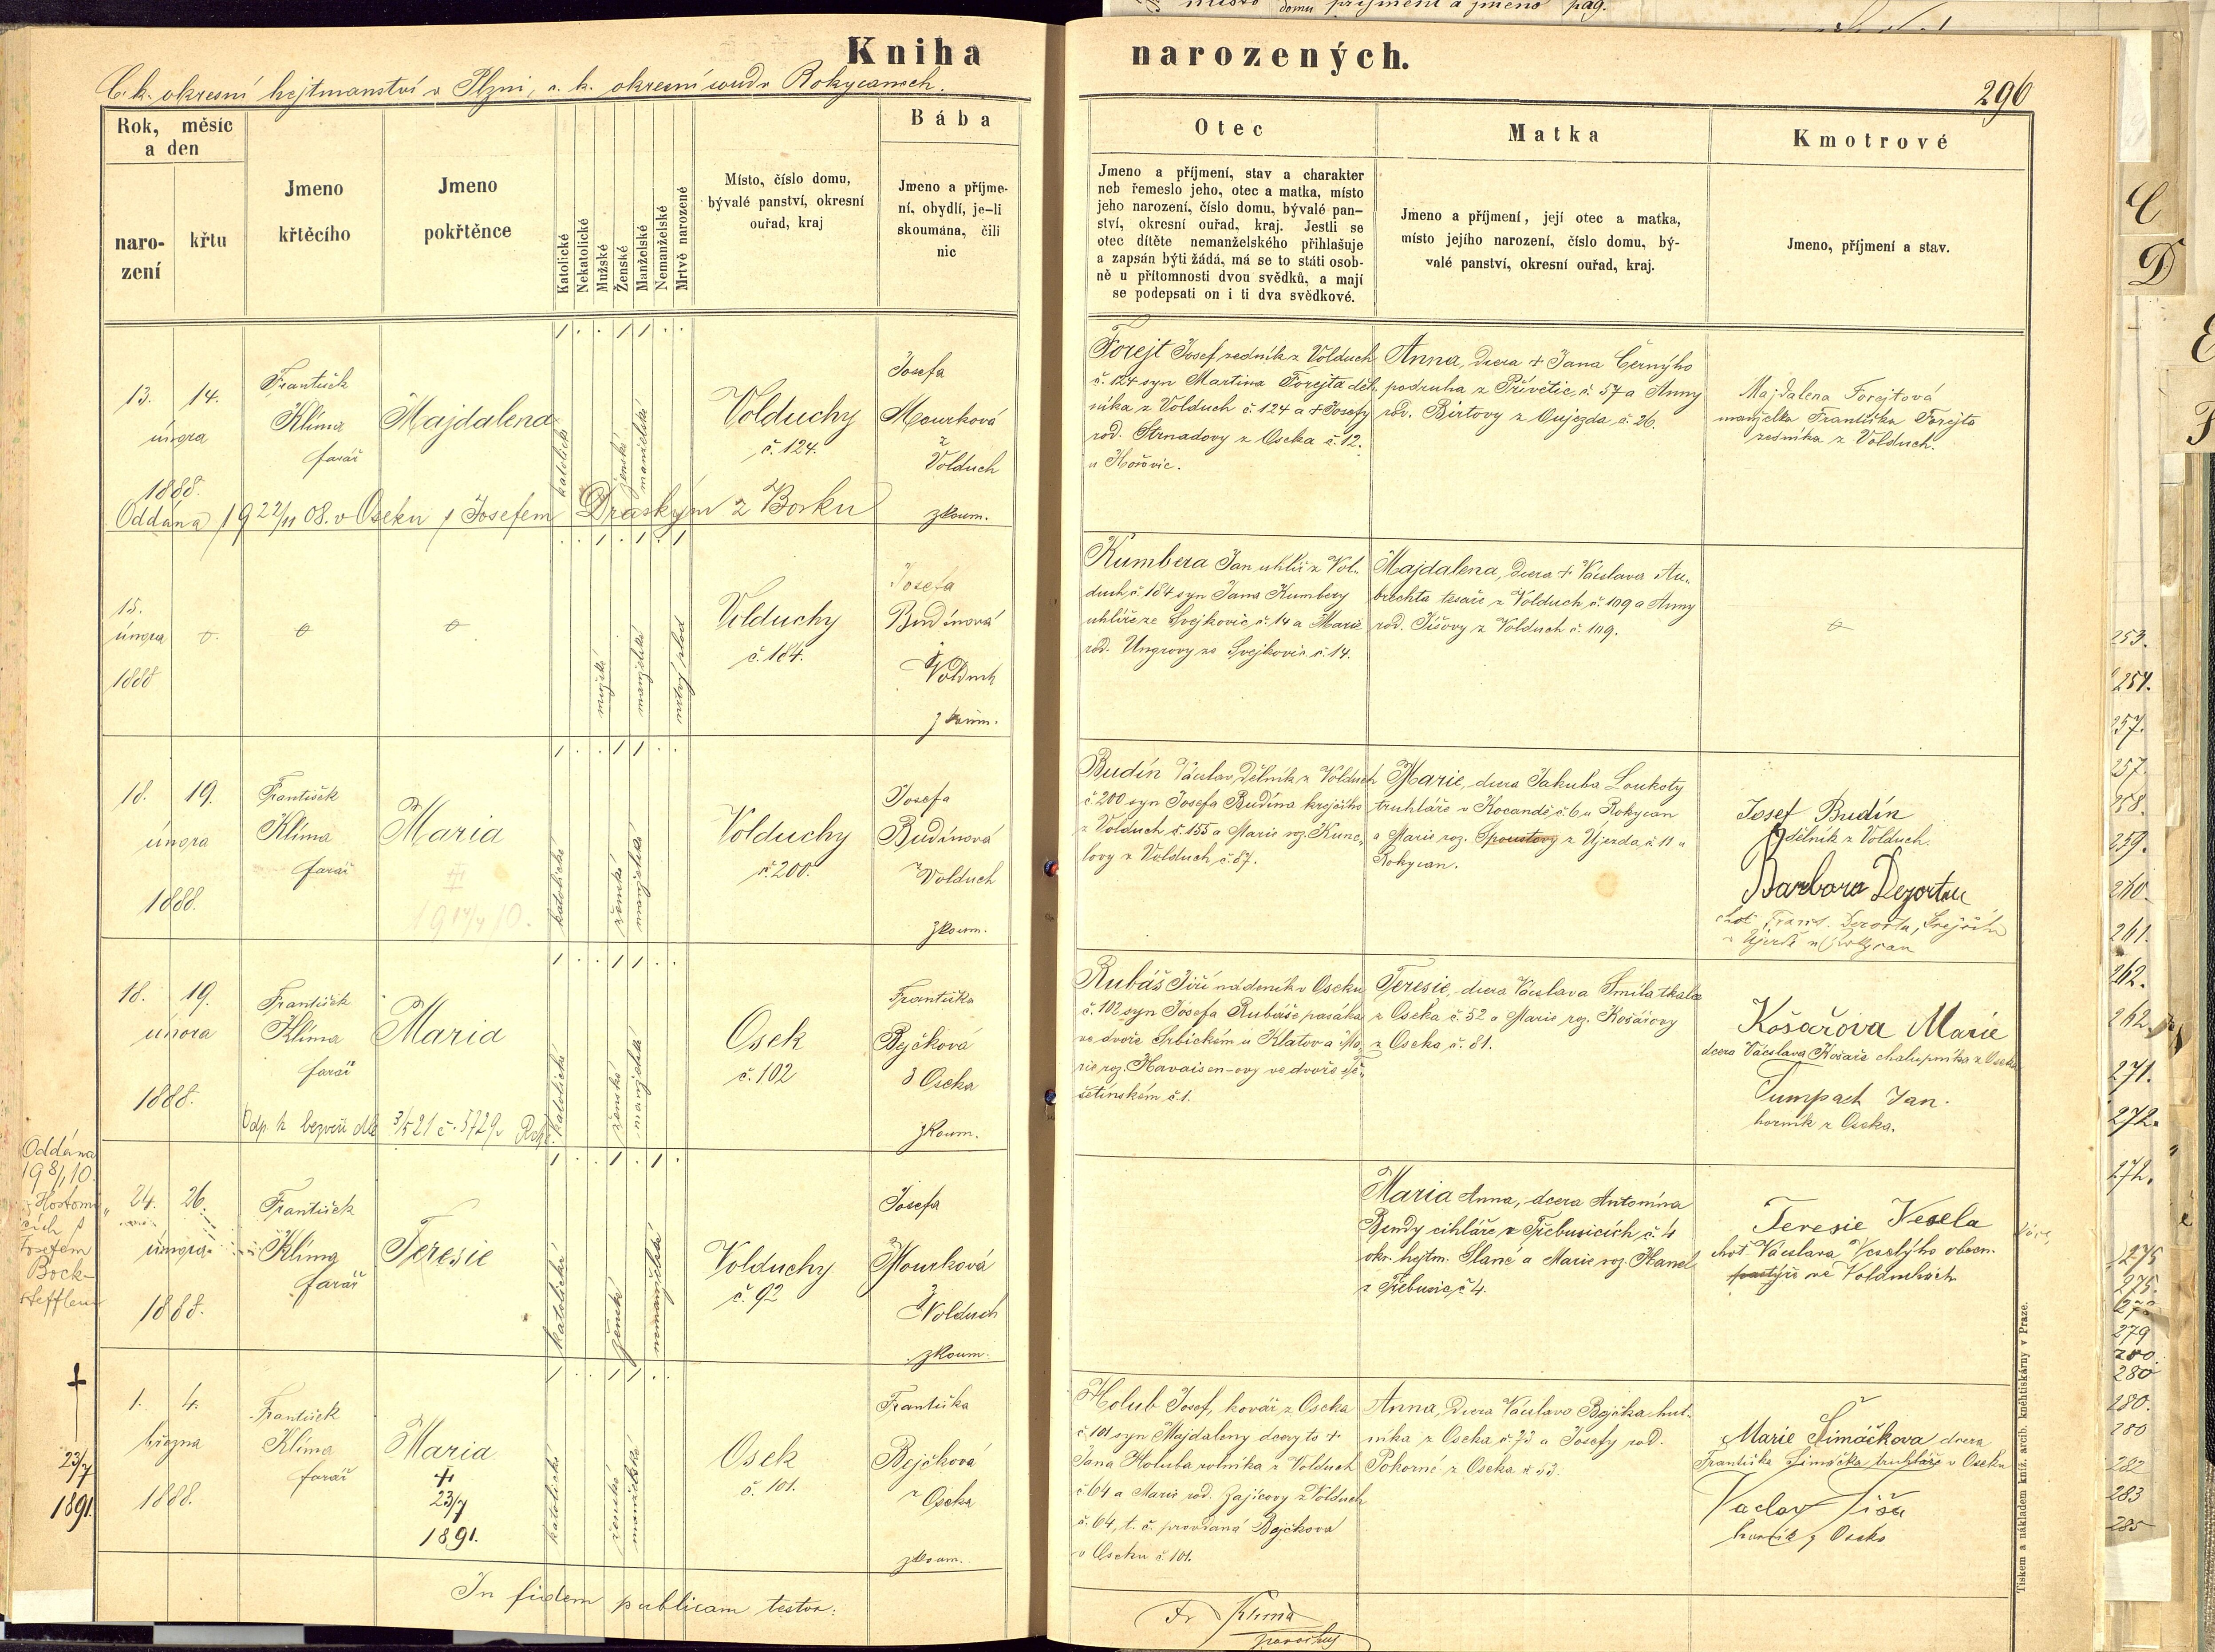 Kniha narozených.
C. k. okresní hejtmanství v Plzni, c. k. okresní soud v Rokycanech.
296
Rok, měsíc
a den
naro-
zení
křtu
Jmeno
křtěcího
Jmeno
pokřtěnce
Katolické
Nekatolické
Mužské
Ženské
Manželské
Nemanželské
Mrtvě narozené
Místo, číslo domu,
bývalé panství, okresní
ouřad, kraj
Bába
Jmeno a příjme-
ní, obydlí, je-li
skoumána, čili
nic
Otec
Jmeno a příjmení, stav a charakter
neb řemeslo jeho, otec a matka, místo
jeho narození, číslo domu, bývalé pan-
ství, okresní ouřad, kraj. Jestli se
otec dítěte nemanželského přihlašuje
a zapsán býti žádá, má se to státi osob-
ně u přítomnosti dvou svědků, a mají
se podepsati on i ti dva svědkové.
Matka
Jmeno a příjmení, její otec a matka,
místo jejího narození, číslo domu, bý-
valé panství, okresní ouřad, kraj.
Kmotrové
Jmeno, příjmení a stav.
13. 14.
února
1888.
František
Klíma
farář
Majdalena
katolické
ženské
manželské
Volduchy
č. 124.
Josefa
Mourková
z
Volduch
zkoum.
Oddána 19 22/11 08. v Oseku s Josefem Draským z Borku
Forejt Josef zedník z Volduch
č. 124 syn Martina Forejta děl-
níka z Volduch č. 124 a + Josefy
rod. Strnadovy z Oseka č. 12.
u Hořovic.
Anna, dcera + Jana Černýho
podruha z Přívětic č. 57 a Anny
rod. Birtovy z Oujezda č. 26.
Majdalena Forejtová
manželka Františka Forejta
zedníka z Volduch.
15.
února
1888
mužské
manželské
mrtvý plod
Volduchy
č. 184.
Josefa
Budínová
z Volduch
zkoum.
Kumbera Jan uhlíř z Vol-
duch č. 184 syn Jana Kumbery
uhlíře ze Svejkovic č. 14 a Marie
rod. Ungrovy ze Svejkovic č. 14.
Majdalena, dcera + Václava Au-
brechta tesaře z Volduch č. 109 a Anny
rod. Tíšovy z Volduch č. 109.
18. 19.
února
1888.
František
Klíma
farář
Maria
katolické
ženské
manželské
Volduchy
č. 200.
Josefa
Budínová
z Volduch
zkoum.
Budín Václav, dělník z Volduch
č. 200 syn Josefa Budína krejčího
z Volduch č. 155 a Marie roz. Kunc-
lovy z Volduch č. 87.
Marie, dcera Jakuba Loukoty
truhláře v Kocandě č. 6 u Rokycan
a Marie roz. Spoustovy z Ujezda č. 11 u
Rokycan.
Josef Budín
dělník z Volduch.
Barbora Dezortou
18. 19.
února
1888.
František
Klíma
farář
Maria
katolické
ženské
manželské
Osek
č. 102
Františka
Bejčková
z Oseka
zkoum.
Rubáš Jiří nádeník v Oseku
č. 102 syn Josefa Rubáše pasáka
ve dvoře Srbickém u Klatov a Ma-
rie roz. Havaisen-ovy ve dvoře Tě-
šetínském č. 1.
Teresie, dcera Václava Smíla tkalce
z Oseka č. 52 a Marie roz. Košařovy
z Oseka č. 81.
Košařova Marie
dcera Václava Košaře chalupníka z Oseka
Tumpach Jan.
horník z Oseka.
Oddána
198/10.
Josefem
24. 26.
února
1888.
František
Klíma
farář
Teresie
katolické
ženské
nemanželské
Volduchy
č. 92
Josefa
Mourková
z Volduch
zkoum.
Maria Anna, dcera Antonína
Bendy cihláře v Třebusicích č. 4
okr. hejtm. Slané a Marie roz. Hanel
z Třebusic č. 4.
Teresie Vesela
choť Václava Veselýho obecn.
pastýře ve Volduchách
†
23/7
1891.
1. 4.
března
1888.
František
Klíma
farář
Maria
†
23/7
1891.
katolické
ženské
manželské
Osek
č. 101.
Františka
Bejčková
z Oseka
zkoum.
Holub Josef, kovář z Oseka
č. 101 syn Majdaleny dcery to +
Jana Holuba rolníka z Volduch
č. 64 a Marie rod. Zajícovy z Volduch
č. 64, t. č. provdaná Bejčková
v Oseku č. 101.
Anna, dcera Václava Bejčka hut-
níka z Oseka č. 73 a Josefy rod.
Pokorné z Oseka č. 53.
Marie Šimáčkova dcera
Františka Šimáčka truhláře v Oseku
Vaclav Tiša
horník z Oseka
In fidem publicam testor:
Fr Klíma
parochus
Tiskem a nákladem kníž. arcib. kněhtiskárny v Praze.
C
D